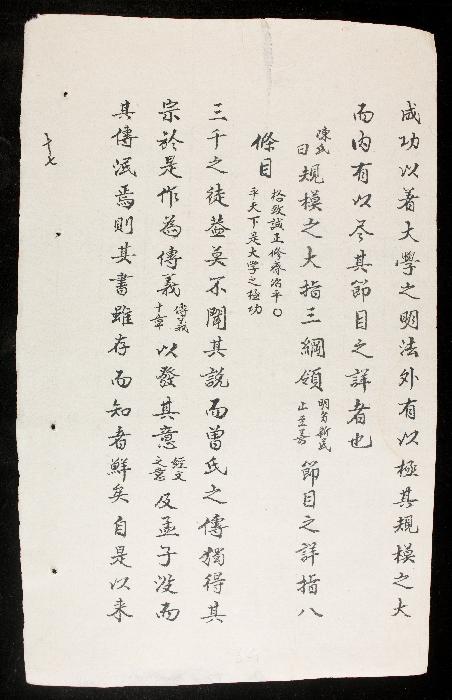 成功以著大學之明法外有以極其規模之大
而內有以尽其節目之詳者也
陳氏曰規模之大指三綱領明明新民止至善節目之詳指八
條目格致誠正修齊治平〇平天下是大學之極功
三千之徒蓋莫不聞其說而曾氏之傳獨得其
宗於是作為傳義傳義十章以發其意經文之意及孟子沒而
其傳泯焉則其書雖存而知者鮮矣自是以来
十七